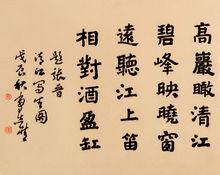 高巖瞰清江
碧峰映曉窗
遠聽江上笛
相對酒盈缸
題張晉
江寫生圖
戊辰秋